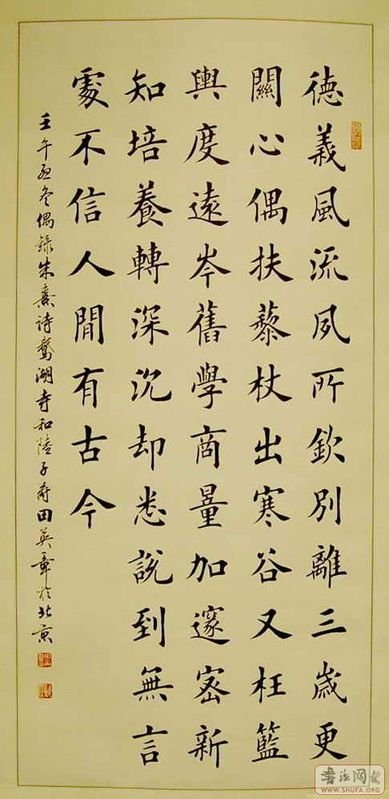 德義風流夙所欽別離三歲更
關心偶扶藜杖出寒谷又枉籃
輿度遠岑舊學商量加邃密新
知培養轉深沉却悉說到無言
處不信人間有古今
壬午孟冬偶錄朱熹詩鵞湖寺和陸子壽田英章於北京
書法網
WWW.SHUFA.ORG